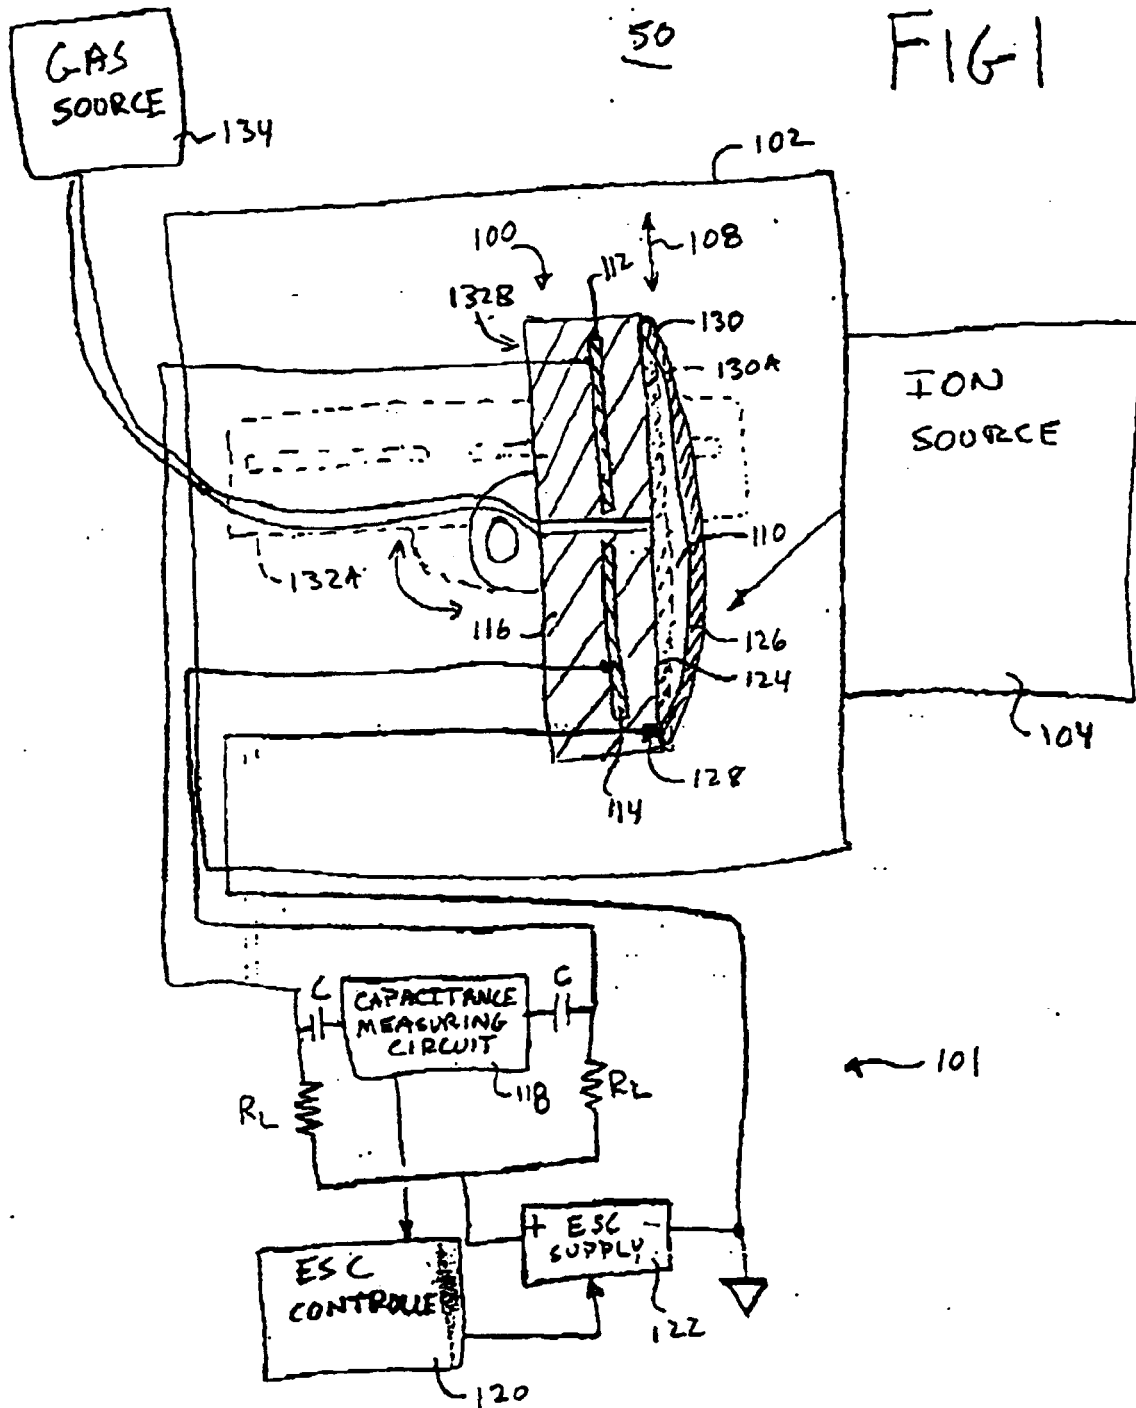 50
FIG 1
GAS
SOURCE
134
102
100
108
112
132B
130
130A
ION
SOURCE
110
132A
116
126
124
104
128
114
C
CAPACITANCE
MEASURING
CIRCUIT
C
118
101
RL
RL
+ ESC -
SUPPLY
ESC
CONTROLLER
122
120